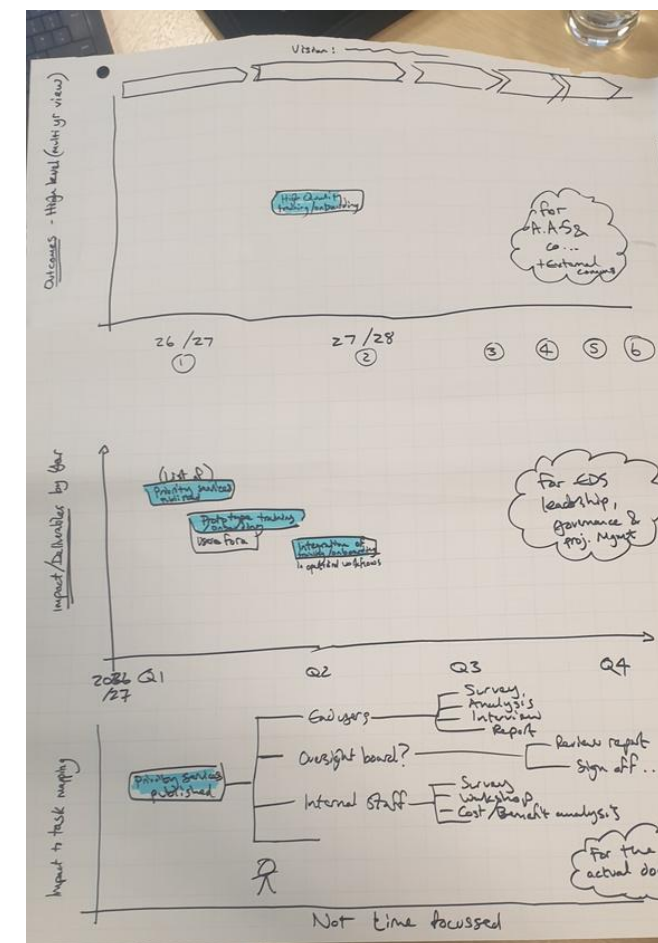 Vision:
Outcomes - High level (multi yr view)
High Quality
training/onboarding
for
A.A.S &
co...
+ External
comms
26/27
1
27/28
2
3
4
5
6
Impact/Deliverables by Year
(List of)
Priority services
published
Prototype training
/onboarding
Integration of
training/onboarding
in workflows
For EDS
leadership,
governance &
proj. Mgmt
2026
/27
Q1
Q2
Q3
Q4
Impact to task mapping
Priority services
published
End users
Survey,
Analysis
Interview
Report
Oversight board?
Review report
Sign off..
Internal Staff
Survey
Workshop
Cost/Benefit analysis
For the
actual do
Not time focussed